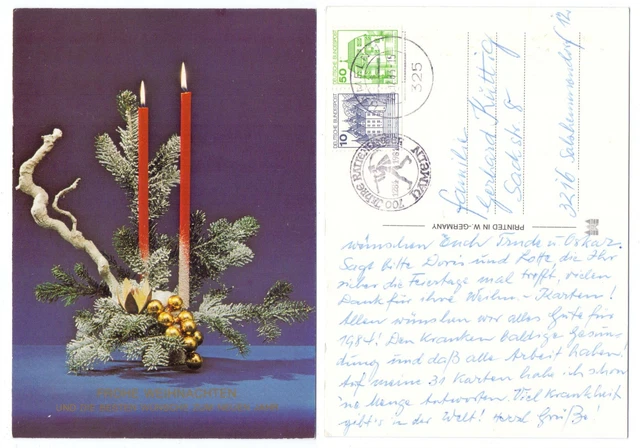 FROHE WEIHNACHTEN
UND DIE BESTEN WÜNSCHE ZUM NEUEN JAHR
50
DEUTSCHE BUNDESPOST
10
DEUTSCHE BUNDESPOST
325
HAMELN
700 Jahre Rattenfänger
1284 1984
Familie
Gerhard Rüttig
Sackstr. 8
3216 Salzhemmendorf 12
PRINTED IN W.-GERMANY
wünschen Euch Trude u. Oskar.
Sagt bitte Doris und Lotte, die Ihr
sicher die Feiertage mal trefft, vielen
Dank für ihre Weihn.-Karten!
Allen wünschen wir alles Gute für
1984! Den Kranken baldige Gesun-
dung und daß alle Arbeit haben.
Auf meine 31 Karten habe ich schon
'ne Menge Antworten. Viel Krankheit
gibt's in der Welt! Herzl. Grüße!